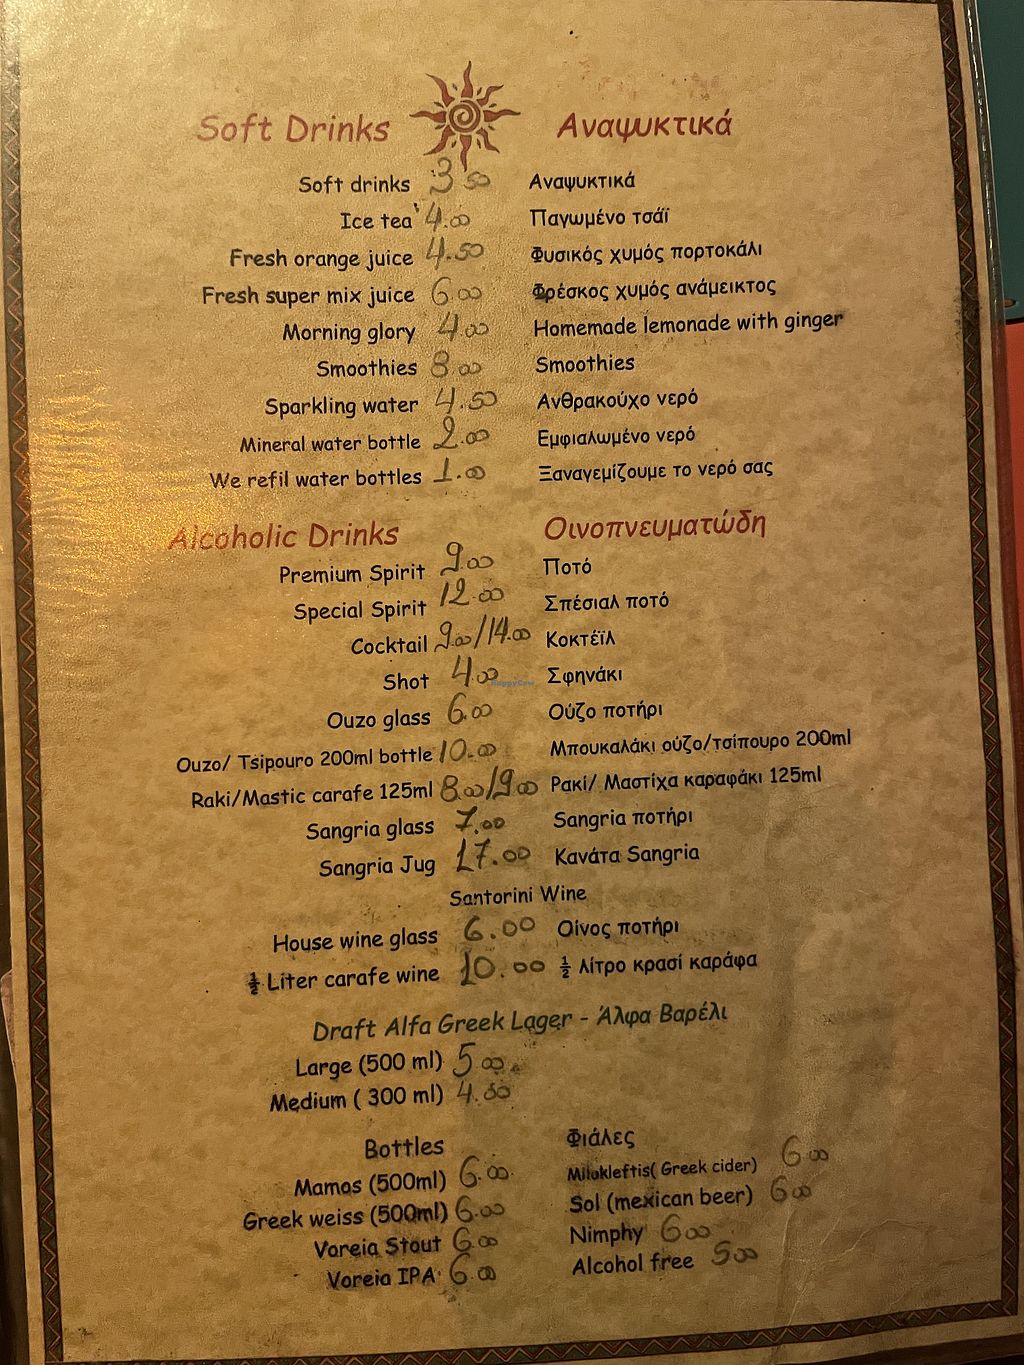 Soft Drinks Αναψυκτικά
Soft drinks 3.50 Αναψυκτικά
Ice tea 4.00 Παγωμένο τσάϊ
Fresh orange juice 4.50 Φυσικός χυμός πορτοκάλι
Fresh super mix juice 6.00 Φρέσκος χυμός ανάμεικτος
Morning glory 4.00 Homemade lemonade with ginger
Smoothies 8.00 Smoothies
Sparkling water 4.50 Ανθρακούχο νερό
Mineral water bottle 2.00 Εμφιαλωμένο νερό
We refil water bottles 1.00 Ξαναγεμίζουμε το νερό σας
Alcoholic Drinks Οινοπνευματώδη
Premium Spirit 9.00 Ποτό
Special Spirit 12.00 Σπέσιαλ ποτό
Cocktail 9.00/14.00 Κοκτέϊλ
Shot 4.00 Σφηνάκι
HappyCow
Ouzo glass 6.00 Ούζο ποτήρι
Ouzo/ Tsipouro 200ml bottle 10.00 Μπουκαλάκι ούζο/τσίπουρο 200ml
Raki/Mastic carafe 125ml 8.00/9.00 Ρακί/ Μαστίχα καραφάκι 125ml
Sangria glass 7.00 Sangria ποτήρι
Sangria Jug 17.00 Κανάτα Sangria
Santorini Wine
House wine glass 6.00 Οίνος ποτήρι
½ Liter carafe wine 10.00 ½ λίτρο κρασί καράφα
Draft Alfa Greek Lager - Άλφα Βαρέλι
Large (500 ml) 5.00
Medium ( 300 ml) 4.00
Bottles Φιάλες
Mamos (500ml) 6.00 Milokleftis( Greek cider) 6.00
Greek weiss (500ml) 6.00 Sol (mexican beer) 6.00
Voreia Stout 6.00 Nimphy 6.00
Voreia IPA 6.00 Alcohol free 5.00